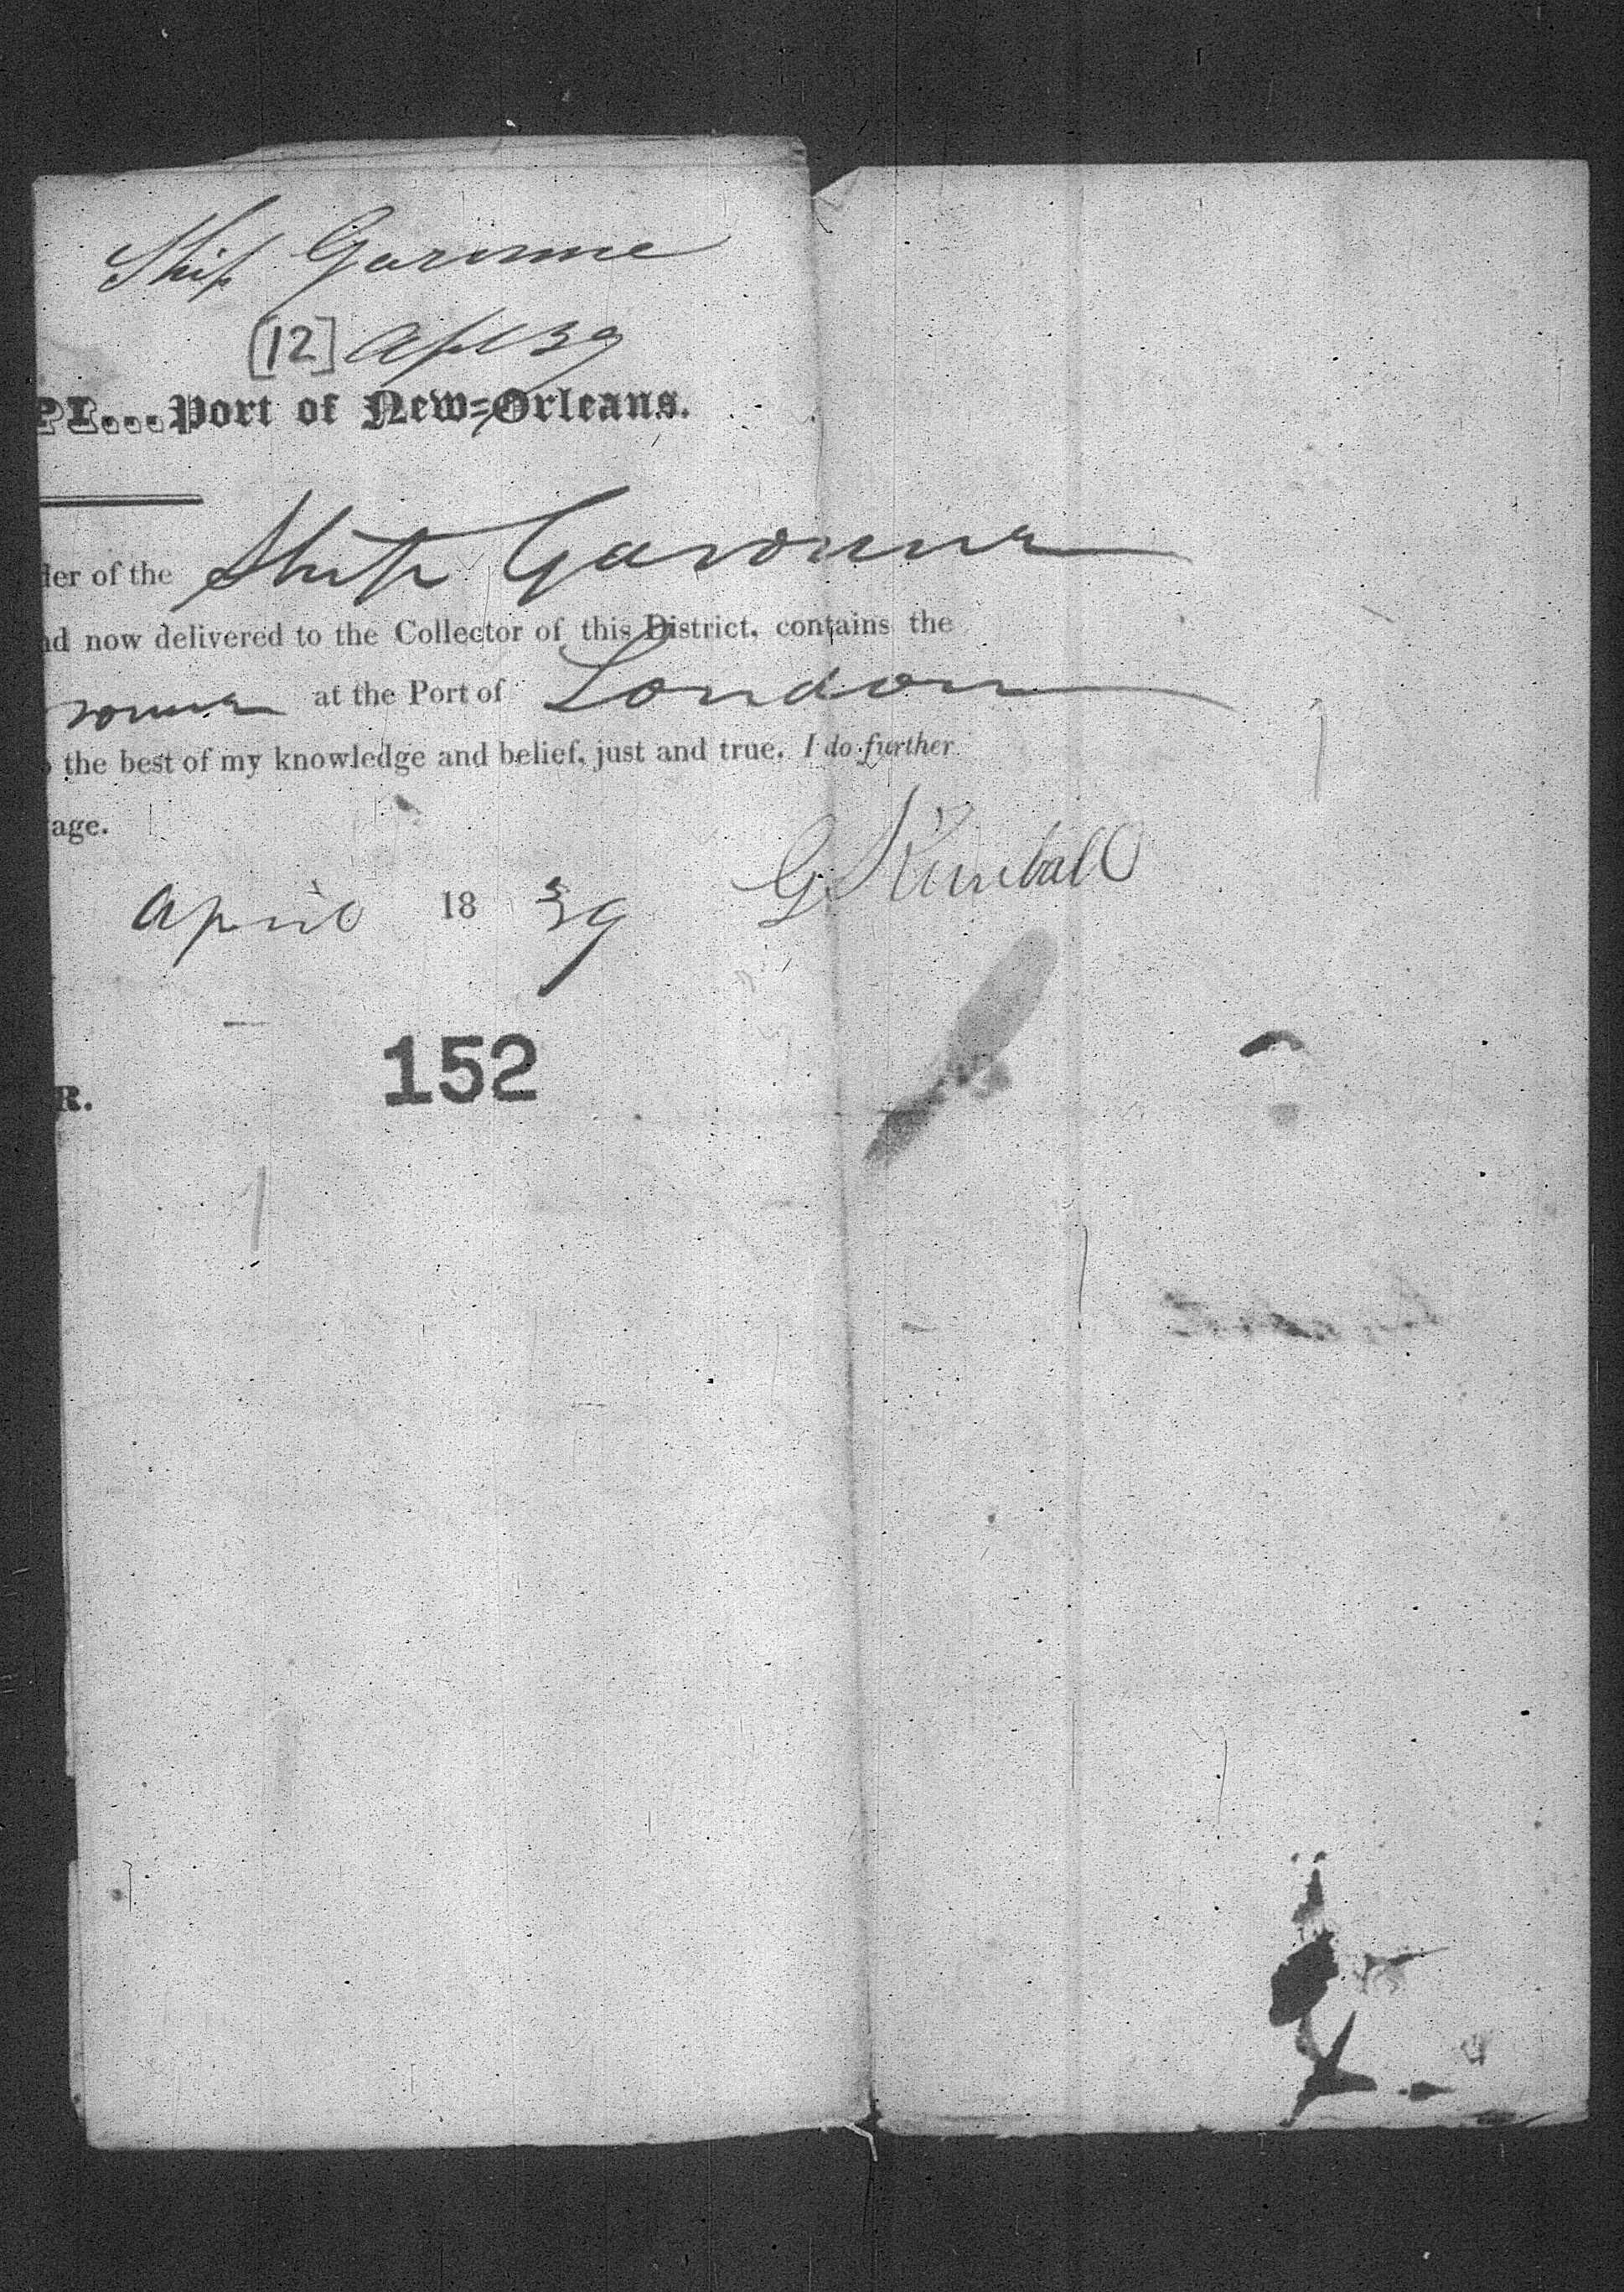 Ship Garonne
[12] Apl 39
PI...Port of New-Orleans.
der of the Ship Garonne
nd now delivered to the Collector of this District, contains the
ronne at the Port of London
o the best of my knowledge and belief, just and true. I do further
age.
April 18 39 G Kimball
152
R.